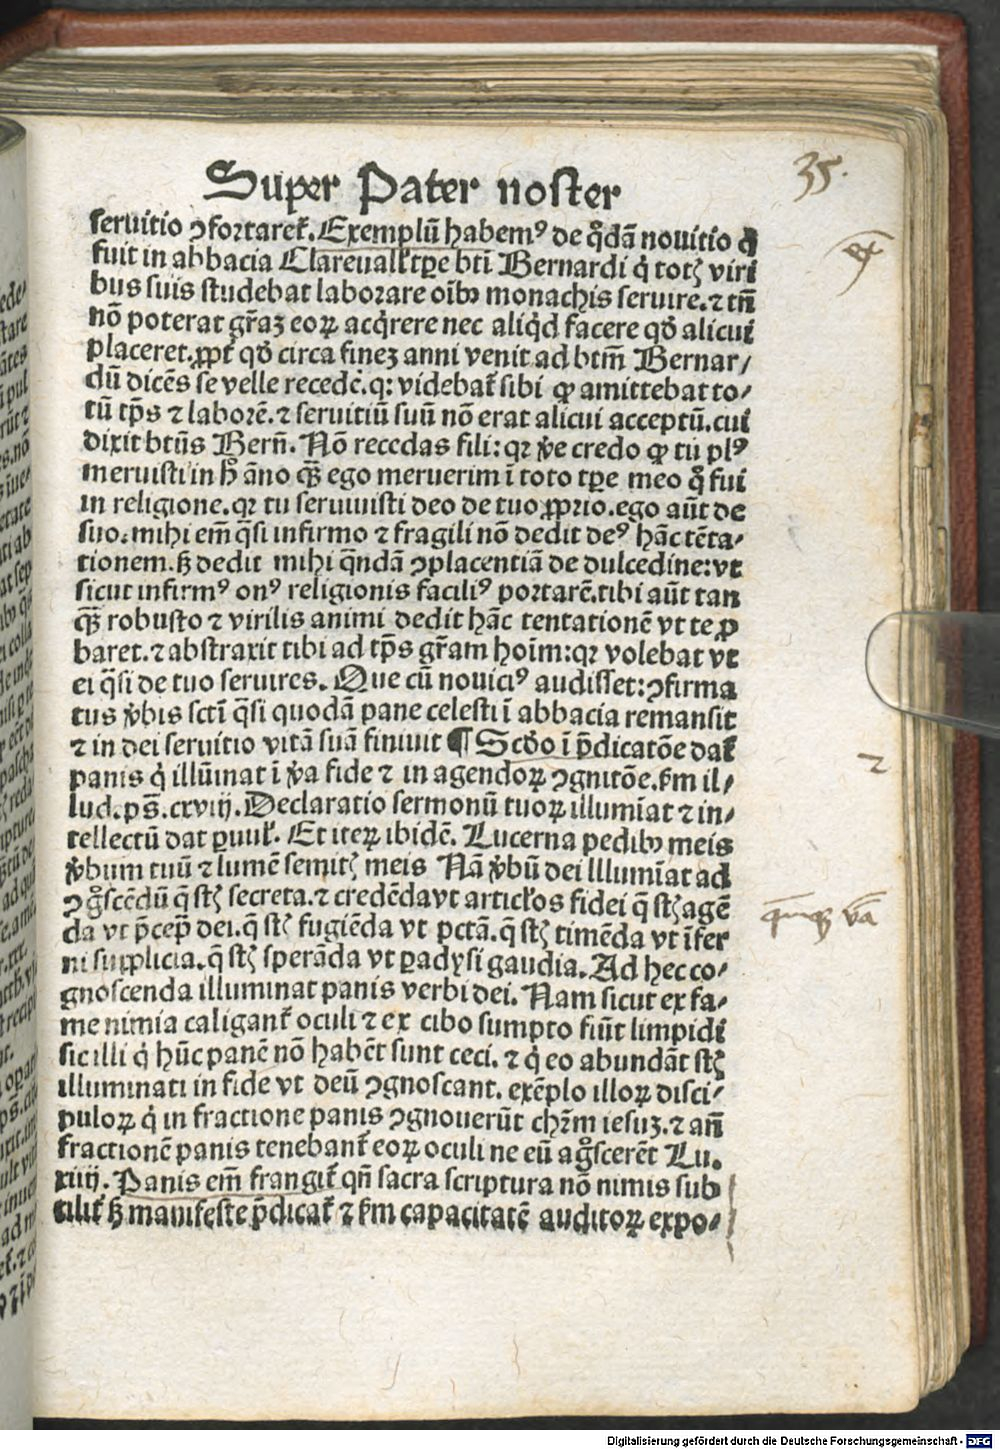 Super Pater noster
35.
seruitio ↄfortareť. Exemplū habemꝰ de q̊dā nouitio q̇
fuit in abbacia Clareuall̃ tꝑe btī Bernardi q̇ totꝭ viri
bus suis studebat laborare oīb᷒ monachis seruire. ⁊ tn̄
nō poterat gr̄aꝫ eoꝝ acq̇rere nec aliq̇d facere qð alicui
placeret. ꝓpť qð circa fineꝫ anni venit ad btm̄ Bernar⸗
dū dicēs se velle recedē. q: videbať sibi ꝙ amittebat to⸗
tū tp̄s ⁊ laborē. ⁊ seruitiū suū nō erat alicui acceptū. cui
dixit btūs Bern̄. Nō recedas fili: qꝛ v̓e credo ꝙ tu plꝰ
meruisti in h̄ āno qȝ̄ ego meruerim ī toto tꝑe meo q̇ fui
in religione. qꝛ tu seruiuisti deo de tuo ꝓprio. ego aūt de
suo. mihi em̄ q̄si infirmo ⁊ fragili nō dedit deꝰ hāc tēta⸗
tionem. sȝ dedit mihi q̄ndā ↄplacentiā de dulcedine: vt
sicut infirmꝰ onꝰ religionis faciliꝰ portarē. tibi aūt tan
qȝ̄ robusto ⁊ virilis animi dedit hāc tentationē vt te ꝓ
baret. ⁊ abstraxit tibi ad tp̄s gr̄am hoīm: qꝛ volebat vt
ei q̄si de tuo seruires. Que cū nouiciꝰ audisset: ↄfirma
tus v̓bis sctī q̄si quodā pane celesti ī abbacia remansit
⁊ in dei seruitio vitā suā finiuit ¶ Scðo ī p̄dicatōe dať
panis q̇ illūinat ī v̓a fide ⁊ in agendoꝝ ↄgnitōe. ẜm il⸗
lud. ps̄. cxviij. Declaratio sermonū tuoꝝ illumīat ⁊ in⸗
tellectū dat ꝑuul̓. Et iteꝝ ibidē. Lucerna pedib᷒ meis
v̓bum tuū ⁊ lumē semitꝭ meis Nā v̓bū dei Illumīat ad
ↄg̊scēdū q̄ stꝭ secreta. ⁊ credēda vt articłos fidei q̄ stꝭ agē
da vt p̄cep̄ dei. q̄ stꝭ fugiēda vt pctā. q̄ stꝭ timēda vt īfer
ni supplicia. q̄ stꝭ sperāda vt ꝑadysi gaudia. Ad hec co⸗
gnoscenda illuminat panis verbi dei. Nam sicut ex fa⸗
me nimia caliganť oculi ⁊ ex cibo sumpto fiūt limpidi
sic illi q̇ hūc panē nō habēt sunt ceci. ⁊ q̇ eo abundāt stꝭ
illuminati in fide vt deū ↄgnoscant. exēplo illoꝝ disci⸗
puloꝝ q̇ in fractione panis ↄgnouerūt chr̄m iesuꝫ. ⁊ an̄
fractionē panis tenebanť eoꝝ oculi ne eū ag̊scerēt Lu.
xiiij. Panis em̄ frangiť qn̄ sacra scriptura nō nimis sub
tiliť sȝ manifeste p̄dicať ⁊ ẜm capacitatē auditoꝝ expo⸗
2
Digitalisierung gefördert durch die Deutsche Forschungsgemeinschaft - DFG